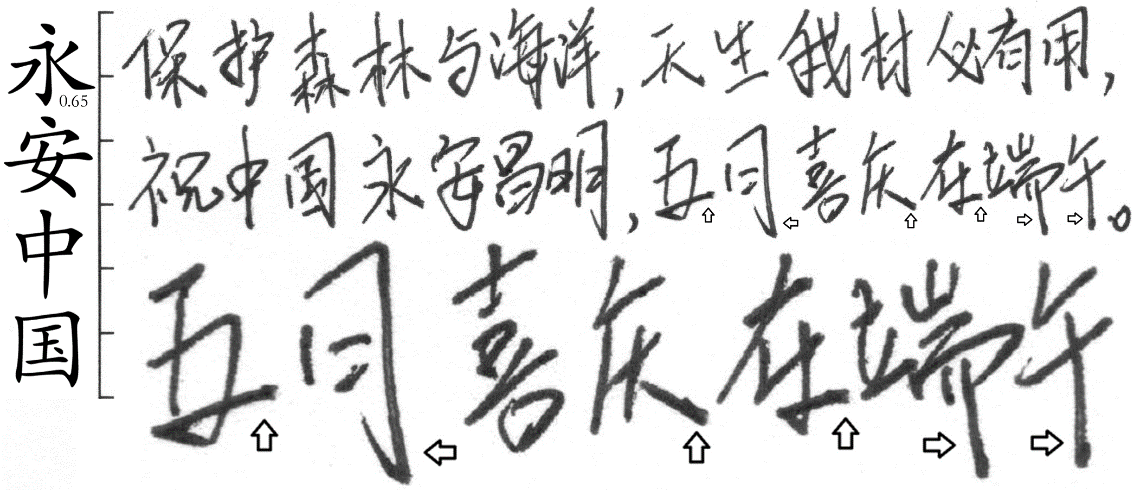 永安中国
0.65
保护森林与海洋,天生我材必有用,
祝中国永安昌明,五月喜庆在端午。
五月喜庆在端午